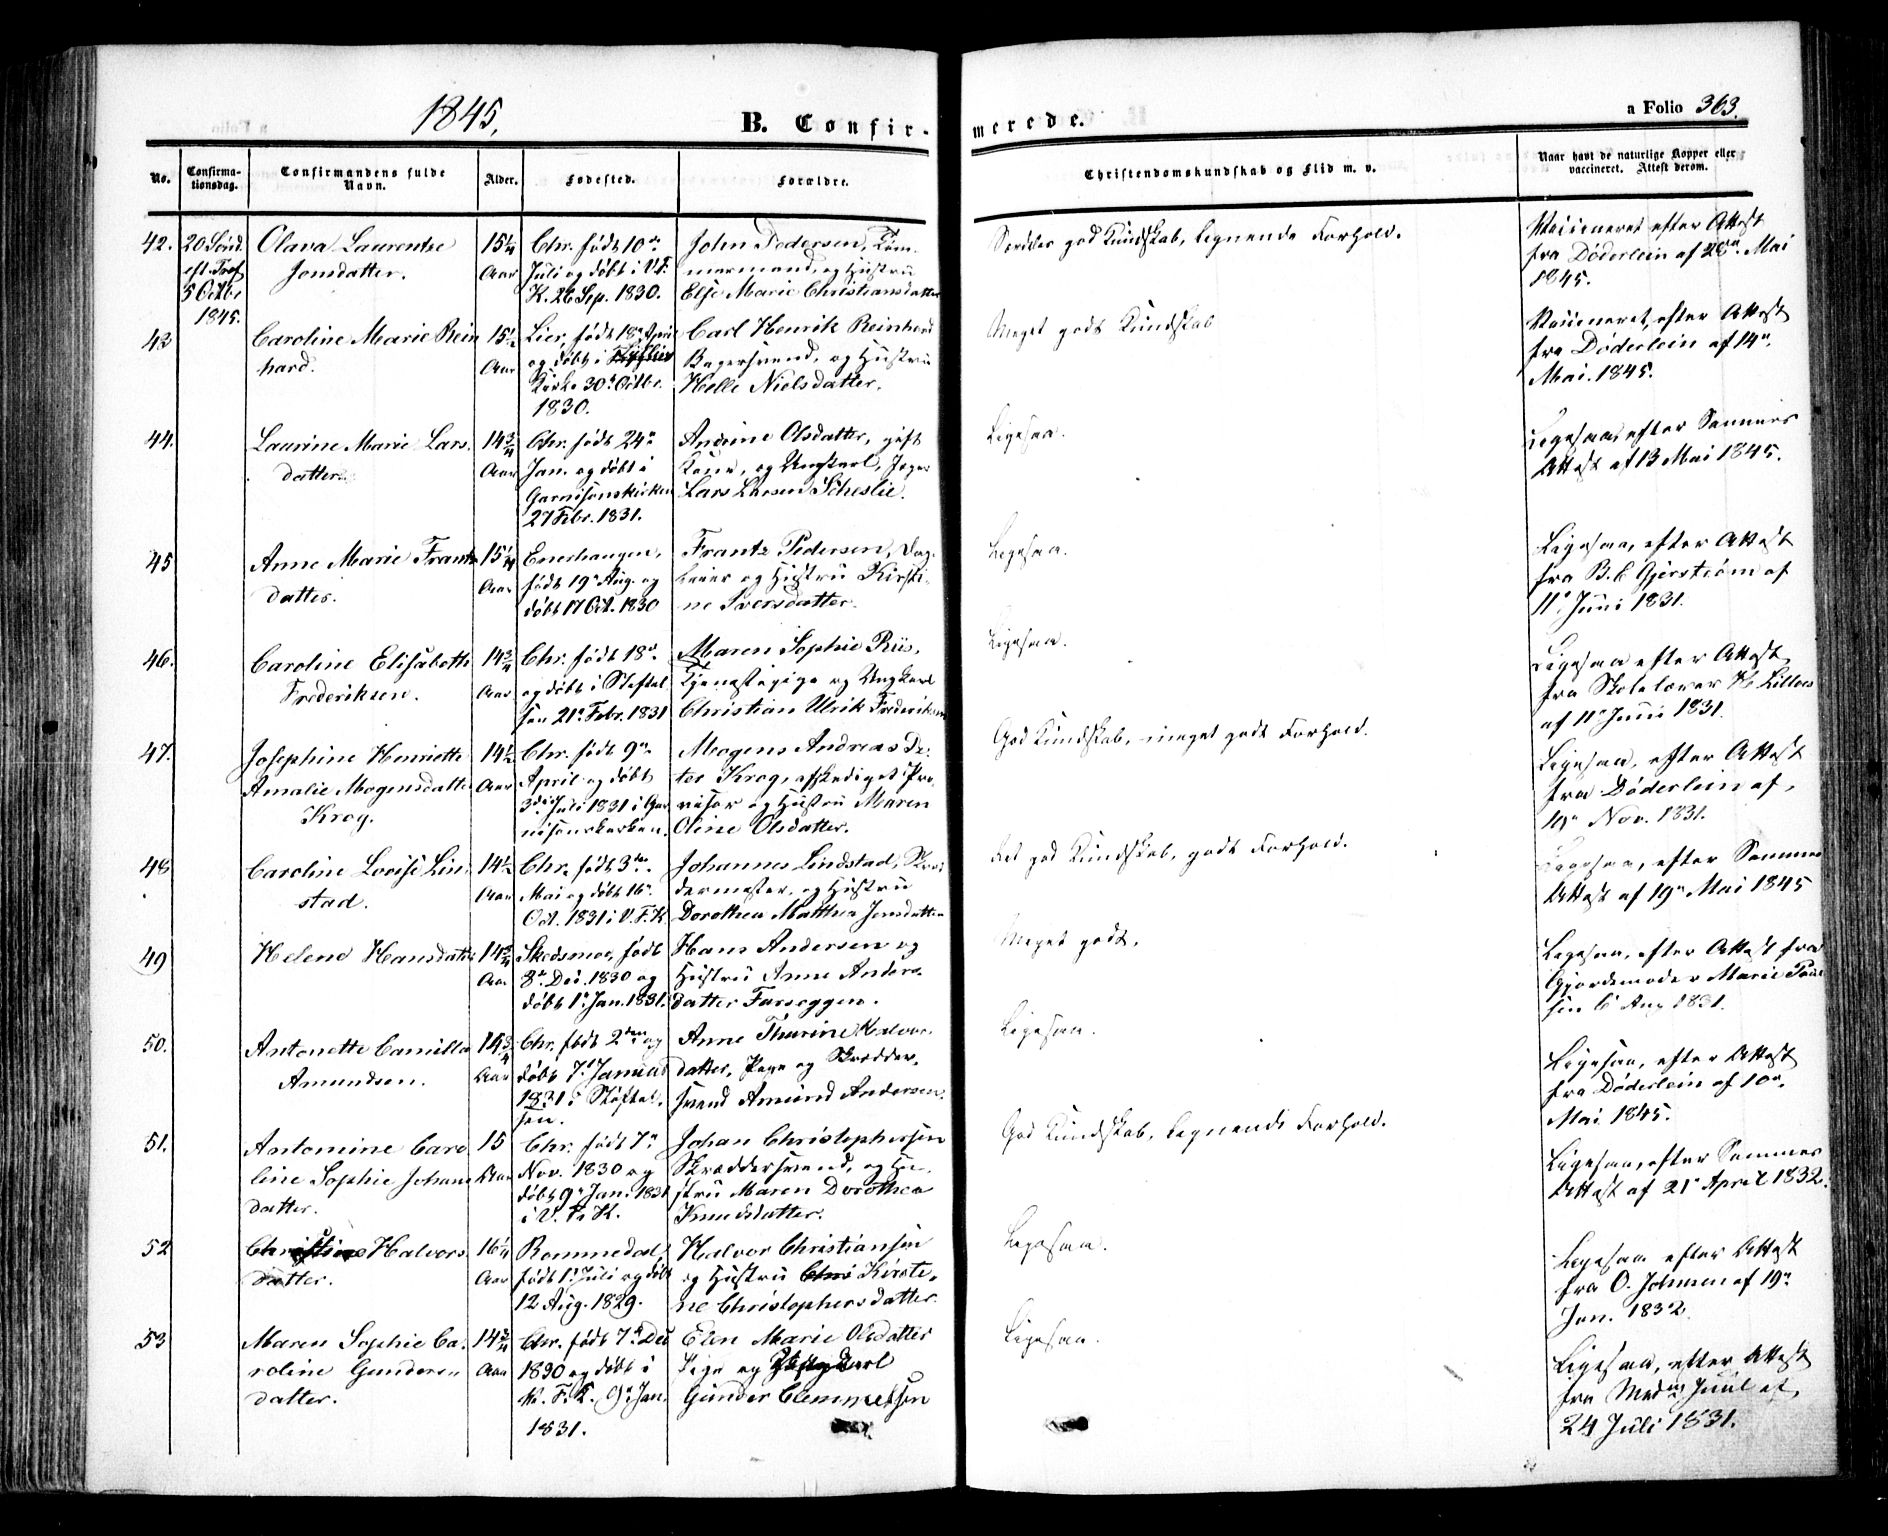 1845.
B. Confir-
merede.
a Folio 363.
No.
Confirma-
tionsdag.
Confirmandens fulde
Navn.
Alder.
Fødested.
Forældre.
Christendomskundskab og Flid m. v.
Naar havt de naturlige Kopper eller
vaccineret. Attest derom.
42.
20 Sønd.
eft. Tref
5 Octbr
1845.
Olava Laurentze
Jonsdatter.
15 1/4
Aar
Chr. født 10de
Juli og døbt i V. F.
K. 26 Sep. 1830.
John Pedersen, Tøm-
mermand, og Hustru
Else Marie Christiansdatter
god Kundskab, lignende Forhold.
Vaccineret efter Attest
fra Døderlein af 28de Mai
1845.
43
Caroline Marie Rein
hard.
15 1/2
Aar
Lier, født 18de April
og døbt i
Kirke 30te Octbr.
1830.
Carl Henrik Reinhard
Bagersvend, og Hustru
Helle Nielsdatter.
Meget gods Kundskab
Vaccineret, efter Attest
fra Døderlein af 14de
Mai. 1845.
44.
Laurine Marie Lars
datter.
14 3/4
Aar
Chr. født 24de
Jan. og døbt i
Garnisonskirken
27 Febr. 1831.
Andrine Olsdatter, gift
Kone, og Ungkarl, Jæger
Lars Larsen Scheslie.
Ligesaa.
Ligesaa, efter Sammes
Attest af 13 Mai 1845.
45
Anne Marie Frants
datter.
15 1/4
Aar
Enerhaugen,
født 19de Aug. og
døbt 17 Oct. 1830
Frantz Pedersen, Dag-
leier og Hustru Kirsti-
ne Iversdatter.
Ligesaa.
Ligesaa, efter Attest
fra B. C. Gjerstrøm af
11te Juni 1831.
46.
Caroline Elisabeth
Frederiksen.
14 3/4
Aar
Chr. født 18de
og døbt i Stiftel
sen 21de Febr. 1831
Maren Sophie Riis,
Tjenestepige og Ungkarl
Christian Ulrik Frederiksen
Ligesaa.
Ligesaa efter Attest
fra Skolelærer
af 11te Juni 1831.
47.
Josephine Henriette
Amalie Mogensdatter
Krog.
14 1/2
Aar
Chr. født 9de
April og døbt
3die Juli 1831 i Gar
nisonskirken.
Mogens Andreas Pe-
ter Krog, afskediget Pro
visor og Hustru Maren
Oline Olsdatter.
God Kundskab, meget godt Forhold.
Ligesaa, efter Attest
fra Døderlein af
10de Nov. 1831.
48
Caroline Lovise Lin
stad.
14 1/2
Aar
Chr. født 3die
Mai og døbt 16de
Oct. 1831 i V. F. K
Johannes Lindstad, Skræd
dermester, og Hustru
Dorothea Matthea Jonsdatter
god Kundskab, godt Forhold.
Ligesaa, efter Sammes
Attest af 19de Mai 1845
49
Helene Hansdatter
14 3/4
Aar
Skedsmoe, født
8de Dec. 1830 og
døbt 1ste Jan. 1831.
Hans Andersen og
Hustru Anne Anders-
datter Farseggen.
Meget godt.
Ligesaa, efter Attest fra
Gjordemoder Marie Paul
sen 6 Aug 1831.
50.
Antonette Camilla
Amundsen.
14 3/4
Aar
Chr. født 2den og
døbt 7de Januar
1831 i Stiftel-
sen.
Anne Thurine Halvors
datter, Pige og Skrædder-
svend Amund Andersen.
Ligesaa.
Ligesaa, efter Attest
fra Døderlein af 10de
Mai 1845.
51.
Antomine Caro
line Sophie Johans
datter.
15
Aar
Chr. født 7de
Nov. 1830 og
døbt 9de Jan. 1831
i V. F. K.
Johan Christophersen
Skræddersvend, og Hu-
stru Maren Dorothea
Knudsdatter.
God Kundskab, lignende Forhold.
Ligesaa, efter Sammes
Attest af 21de April 1832.
52
Christine Halvors
datter.
16 1/4
Aar
Rommedal,
født 1ste Juli og døbt
12 Aug. 1829.
Halvor Christiansen
og Hustru Kirsti-
ne Christophersdatter.
Ligesaa.
Ligesaa efter Attest
fra O. Johnsen af 19de
Jan. 1832.
53
Maren Sophie Ca-
roline Gunders-
datter.
14 3/4
Aar
Chr. født 7de Dec
1830 og døbt i
V. F. K. 9de Jan.
1831.
Elen Marie Olsdatter
Pige og Ungkarl
Gunder Clemmetsen
Ligesaa.
Ligesaa, efter Attest
fra Juul af
24 Juli 1831.